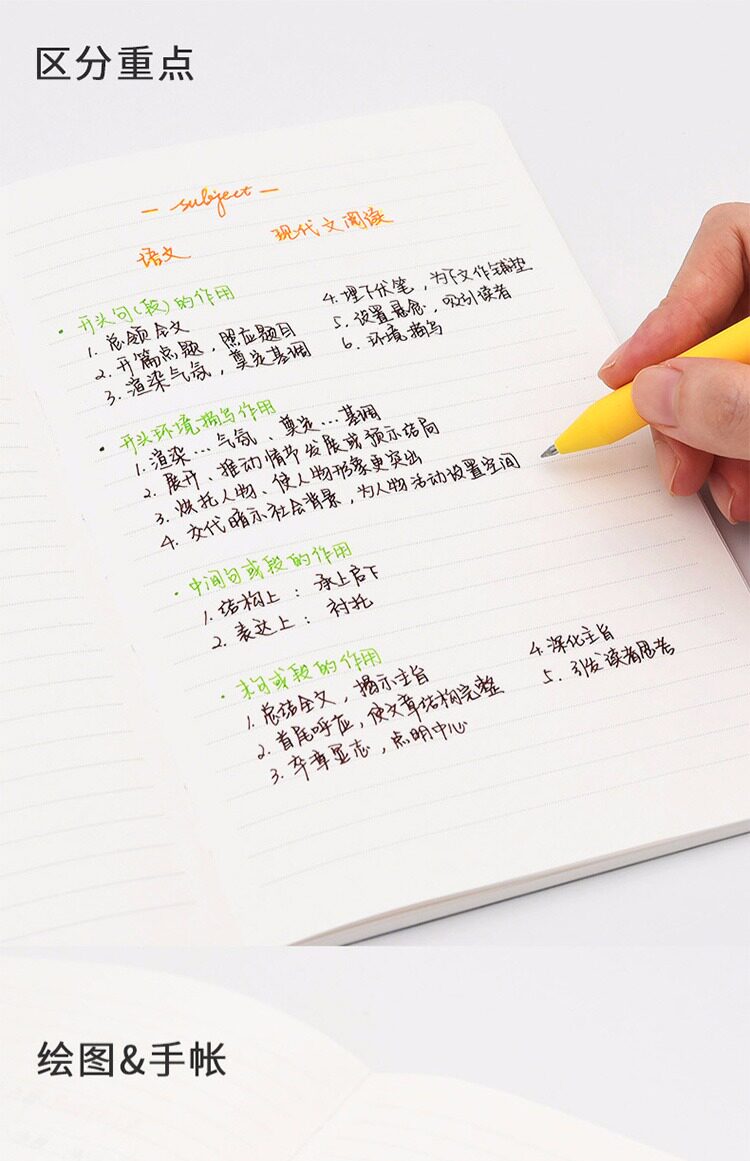 区分重点
— subject —
语文 现代文阅读
· 开头句(段)的作用
1. 总领全文
2. 开篇点题，照应题目
3. 渲染气氛，奠定基调
4. 埋下伏笔，为下文作铺垫
5. 设置悬念，吸引读者
6. 环境描写
· 开头环境描写作用
1. 渲染…气氛、奠定…基调
2. 展开、推动情节发展或预示结局
3. 烘托人物、使人物形象更突出
4. 交代暗示社会背景，为人物活动设置空间
· 中间句或段的作用
1. 结构上：承上启下
2. 表达上：衬托
· 末句或段的作用
1. 总结全文，揭示主旨
2. 首尾呼应，使文章结构完整
3. 卒章显志，点明中心
4. 深化主旨
5. 引发读者思考
绘图&手帐